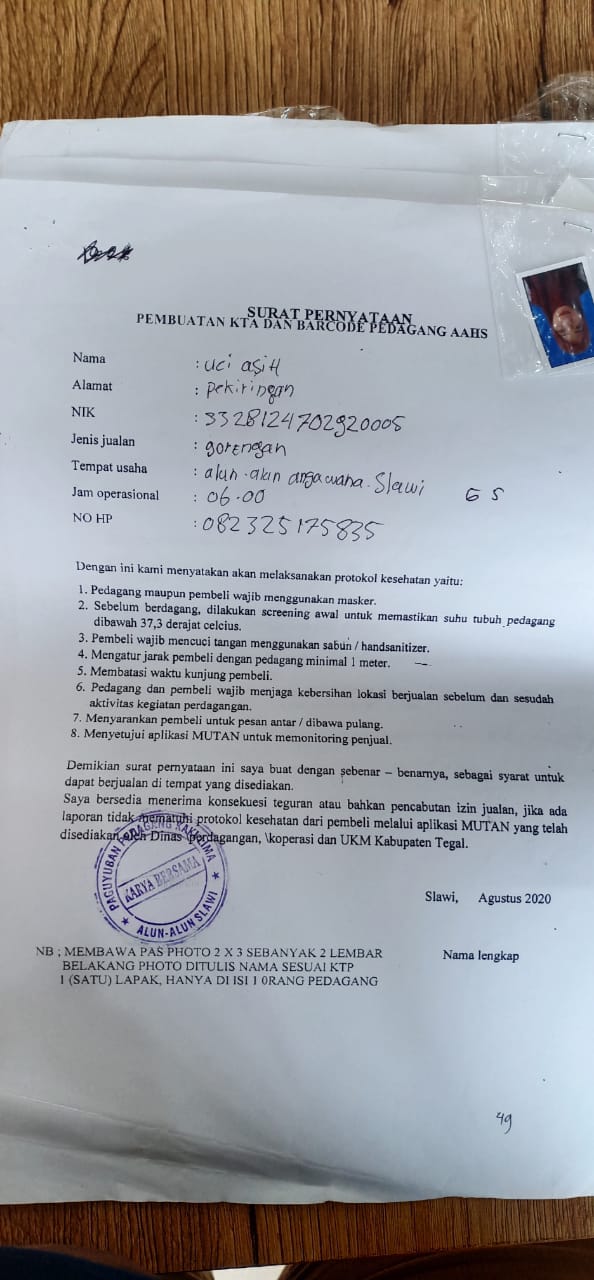 SURAT PERNYATAAN
PEMBUATAN KTA DAN BARCODE PEDAGANG AAHS
Nama : uci asiH
Alamat : pekiringan
NIK : 3328124702920005
Jenis jualan : gorengan
Tempat usaha : alun-alun anggawana. Slawi
Jam operasional : 06.00 G S
NO HP : 082325175835
Dengan ini kami menyatakan akan melaksanakan protokol kesehatan yaitu:
1. Pedagang maupun pembeli wajib menggunakan masker.
2. Sebelum berdagang, dilakukan screening awal untuk memastikan suhu tubuh pedagang
dibawah 37,3 derajat celcius.
3. Pembeli wajib mencuci tangan menggunakan sabun / handsanitizer.
4. Mengatur jarak pembeli dengan pedagang minimal 1 meter.
5. Membatasi waktu kunjung pembeli.
6. Pedagang dan pembeli wajib menjaga kebersihan lokasi berjualan sebelum dan sesudah
aktivitas kegiatan perdagangan.
7. Menyarankan pembeli untuk pesan antar / dibawa pulang.
8. Menyetujui aplikasi MUTAN untuk memonitoring penjual.
Demikian surat pernyataan ini saya buat dengan sebenar – benarnya, sebagai syarat untuk
dapat berjualan di tempat yang disediakan.
Saya bersedia menerima konsekuesi teguran atau bahkan pencabutan izin jualan, jika ada
laporan tidak mematuhi protokol kesehatan dari pembeli melalui aplikasi MUTAN yang telah
disediakan oleh Dinas \perdagangan, \koperasi dan UKM Kabupaten Tegal.
PAGUYUBAN PEDAGANG KAKI LIMA
KARYA BERSAMA
ALUN-ALUN SLAWI
Slawi, Agustus 2020
NB ; MEMBAWA PAS PHOTO 2 X 3 SEBANYAK 2 LEMBAR
BELAKANG PHOTO DITULIS NAMA SESUAI KTP
1 (SATU) LAPAK, HANYA DI ISI 1 0RANG PEDAGANG
Nama lengkap
49